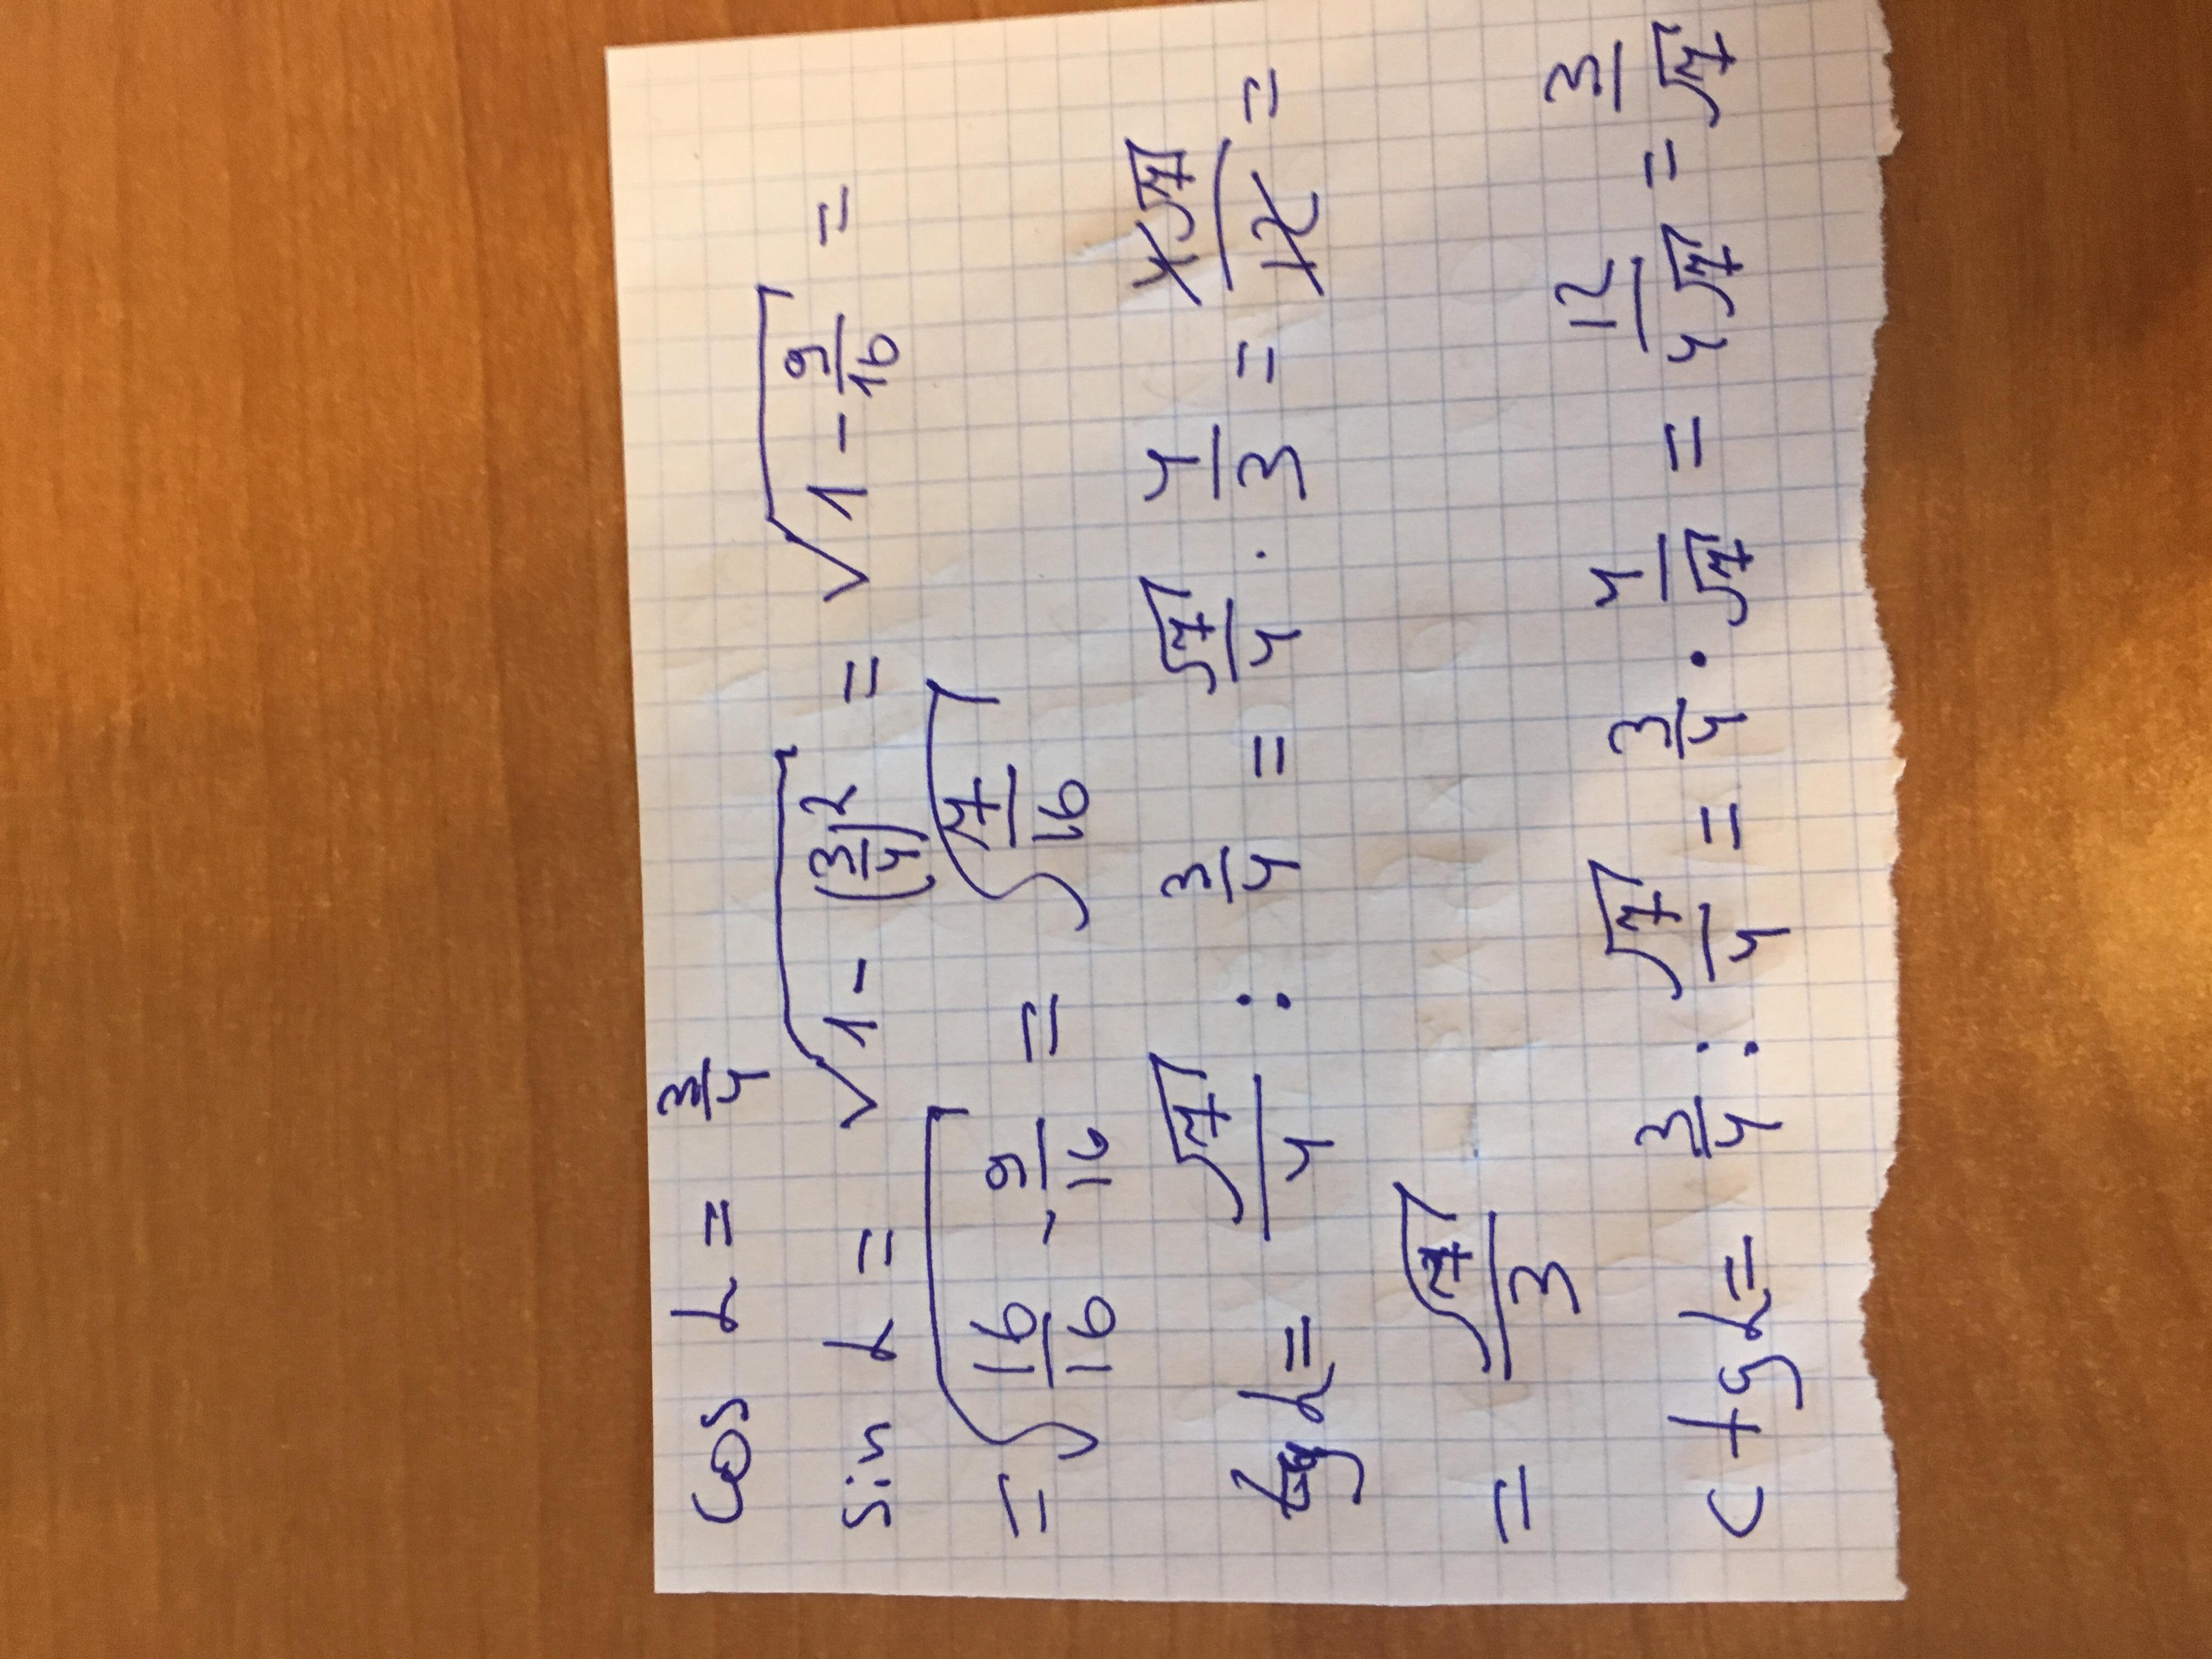 cos α = 3/4
sin α = √(1 - (3/4)²) = √(1 - 9/16) =
= √(16/16 - 9/16) = √(7/16)
tg α = √7/4 : 3/4 = √7/4 · 4/3 = 4√7/12 =
= √7/3
ctg α = 3/4 : √7/4 = 3/4 · 4/√7 = 12/4√7 = 3/√7